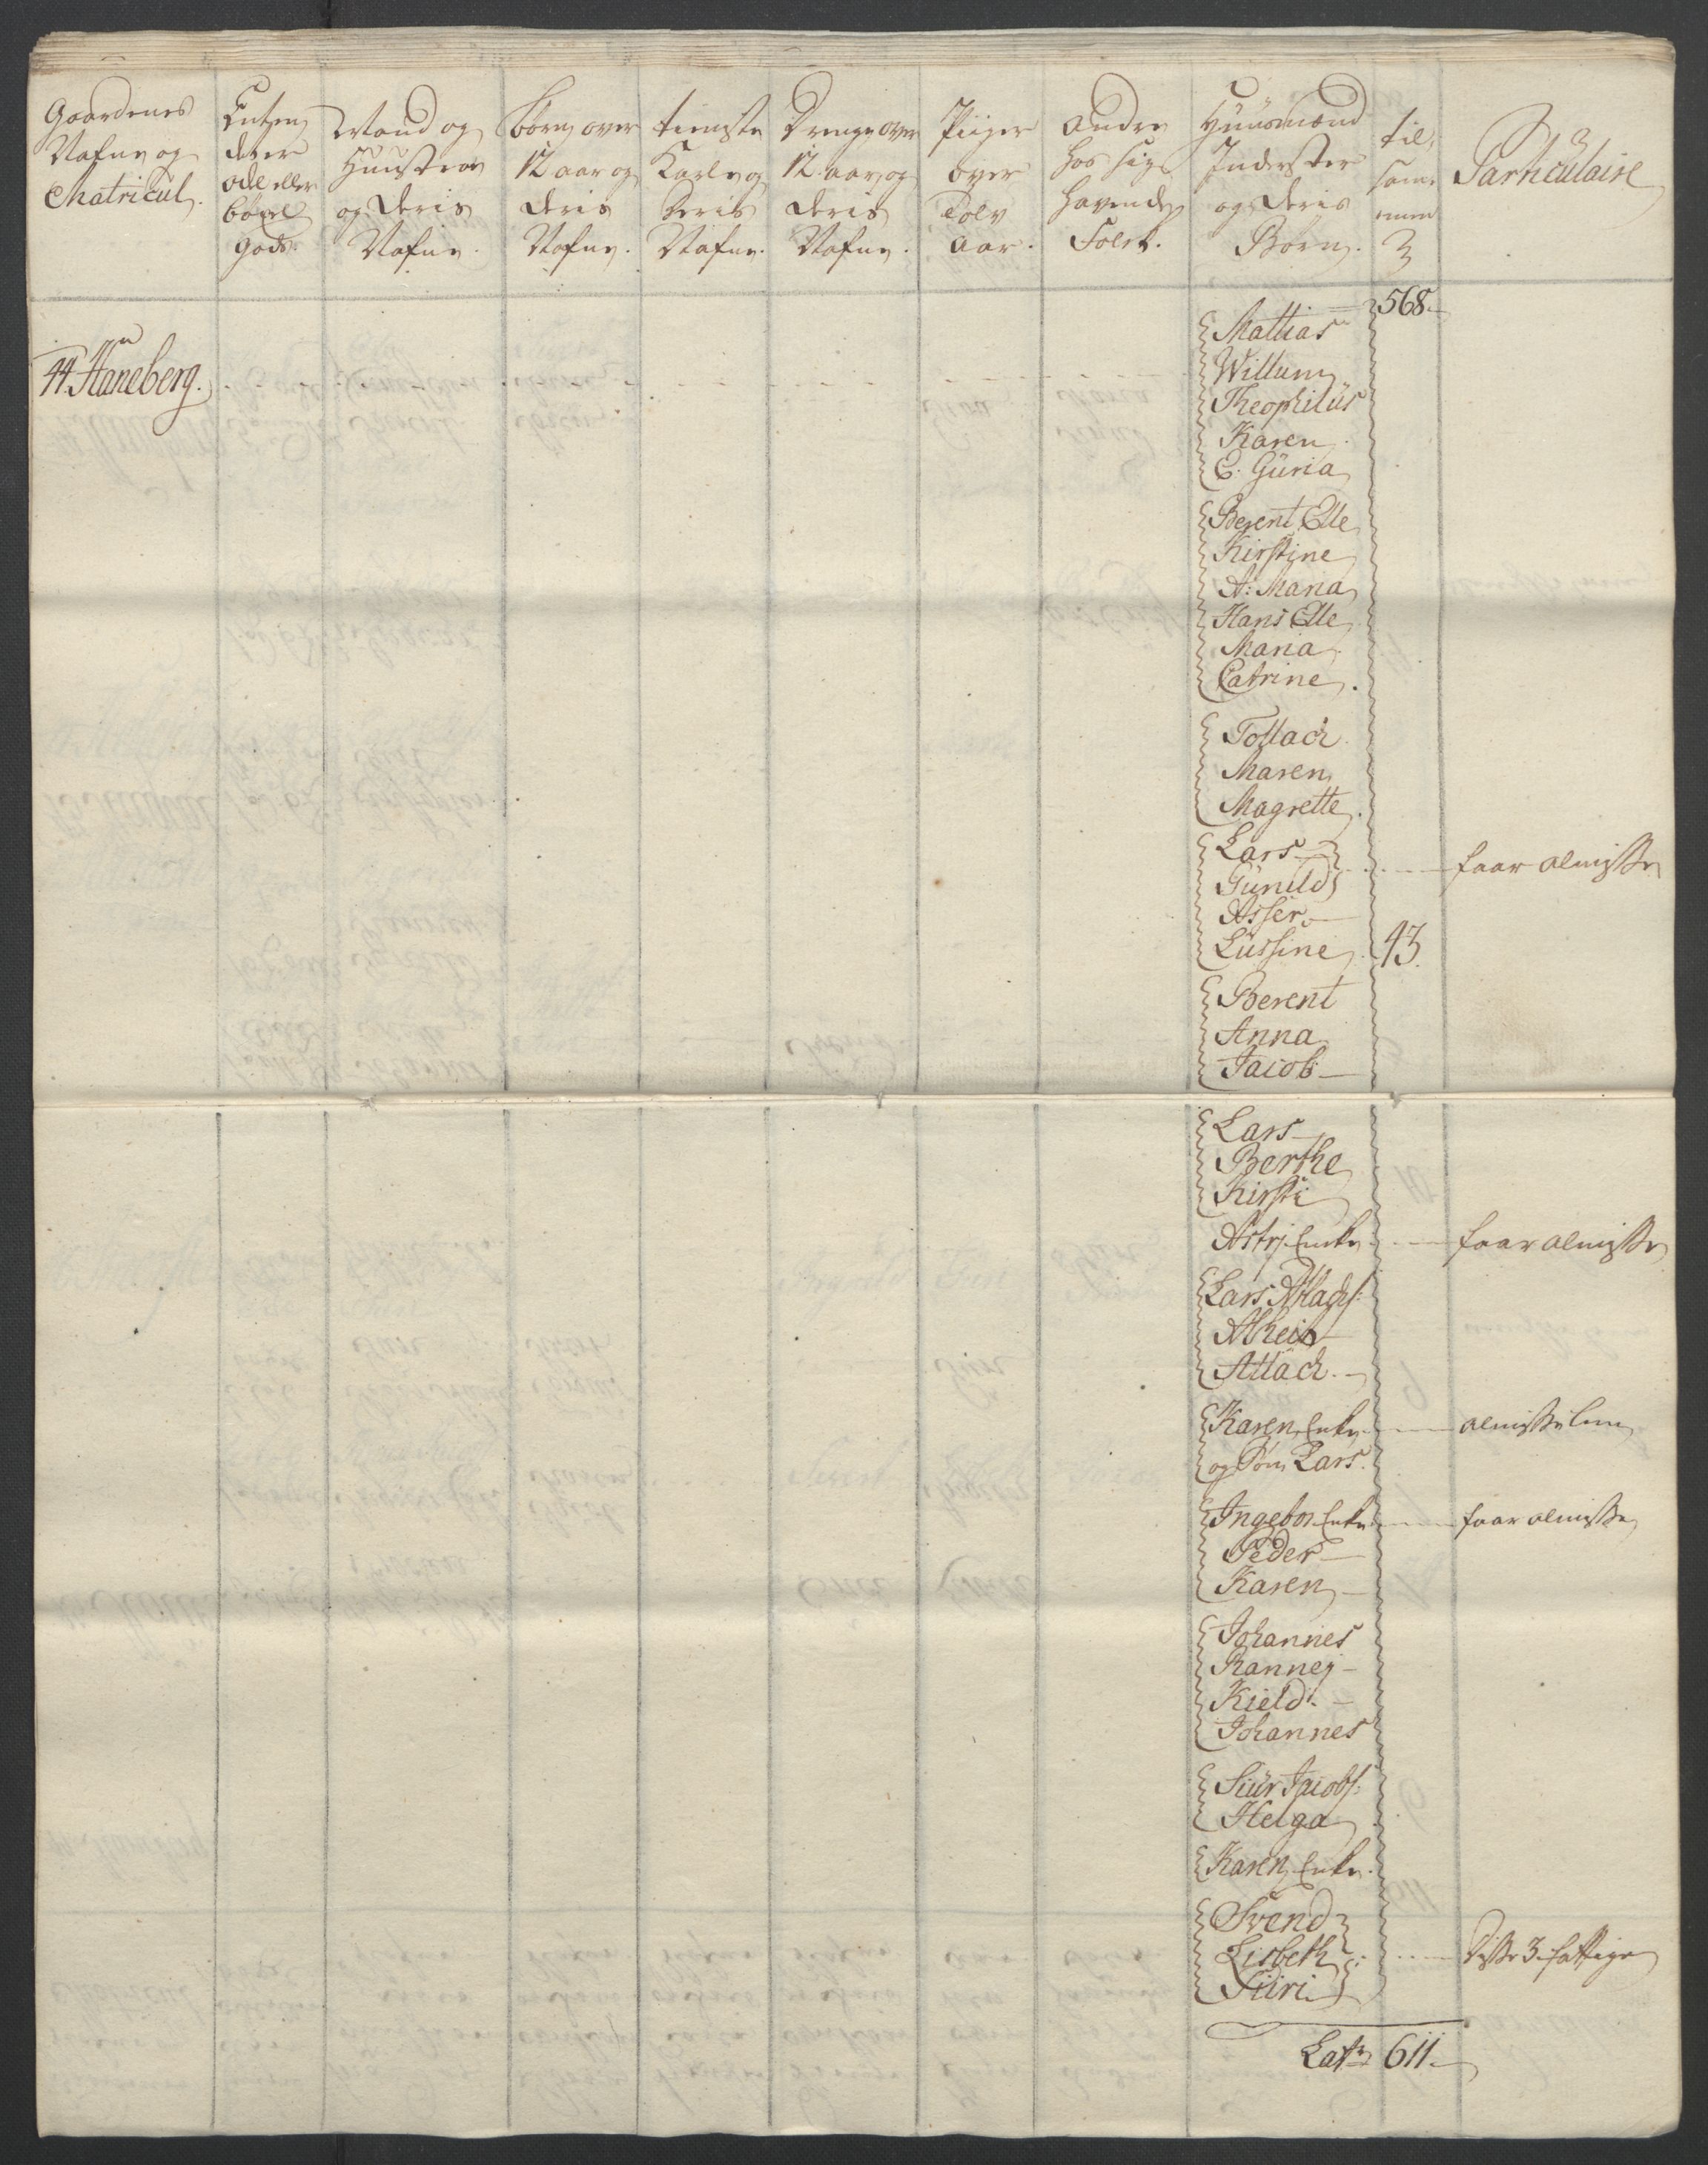 Gaardenes
Nafne og
Matricul.
Enten
det er
odel eller
böxel
gods.
Mand og
Huustroe
og deris
Nafne.
Børn over
12 aar og
deris
Nafne.
tieniste
Karle og
deris
Nafne.
Drenge over
12 aar og
deris
Nafne.
Piiger
over
tolv
aar.
andre
hos sig
havende
Folck.
Huusmænd
Inderster
og deris
Børn.
til
sam
men
3
Particulaire
568
44. Haneberg.
Mathias
Willum
Theophilüs
Karen
C. Güria
Berent Elle
Kirstine
A: Maria
Hans Elle
Maria
Catrine.
Tollach
Maren
Magrette.
Lars
Günild faar almisse
Asser
Lüssine 43.
Berent
Anna
Jacob
Lars
Berthe
Kirsti
Astri Enke faar almisse
Lars Atlachs:
Alheid
Atlach.
Karen Enke almisse lem
og Søn Lars.
Ingebor Enke faar almisse
Peder
Karen
Johannes
Rannej
Kield.
Johannes
Siür Jacobs:
Helga
Karen Enke.
Svend
Lisbeth disse 3 fattige
Siiri
Latr 611